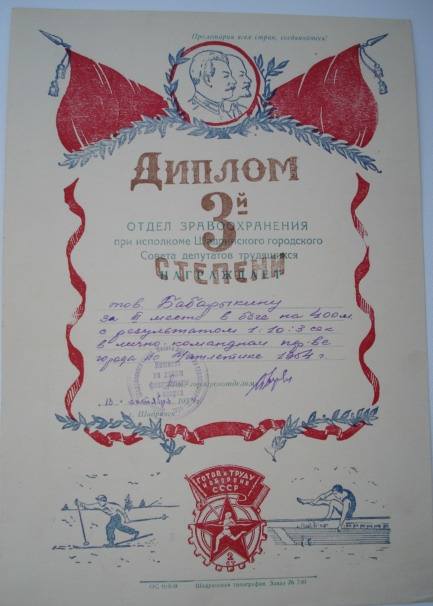 Пролетарии всех стран, соединяйтесь!
ДИПЛОМ
3й
СТЕПЕНИ
ОТДЕЛ ЗРАВООХРАНЕНИЯ
при исполкоме Шадринского городского
Совета депутатов трудящихся
НАГРАЖДАЕТ
тов. Бабадыкину
за III место в беге на 400м
с результатом 1:10:3 сек
в лично-командном пр-ве
города по л/атлетике 1954 г.
горздравотделом
1954 г.
г. Шадринск
ГОТОВ К ТРУДУ
И ОБОРОНЕ
СССР
2
СТ
Шадринская типография. Заказ №